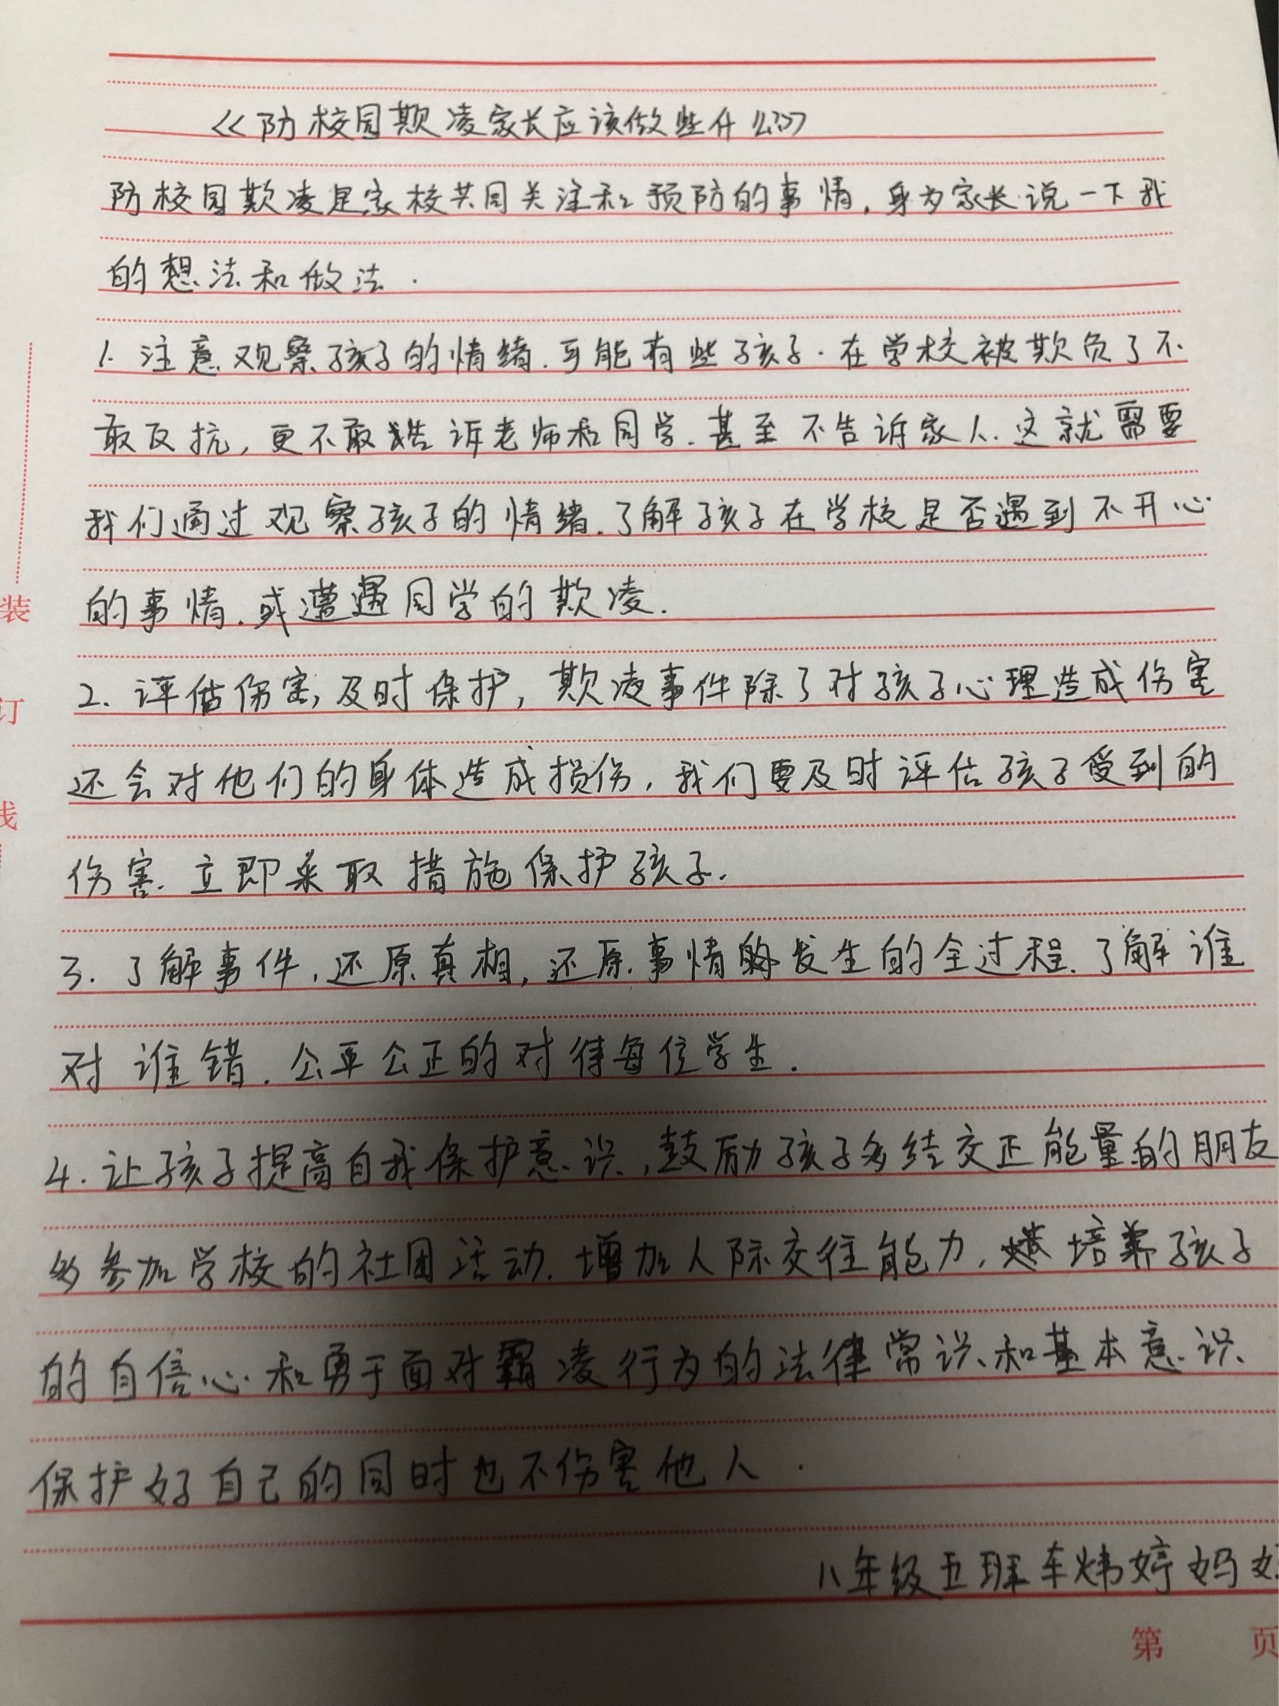 《防校园欺凌家长应该做些什么》
防校园欺凌是家校共同关注和预防的事情，身为家长说一下我
的想法和做法.
1. 注意观察孩子的情绪.可能有些孩子.在学校被欺负了不
敢反抗，更不敢告诉老师和同学.甚至不告诉家人.这就需要
我们通过观察孩子的情绪.了解孩子在学校是否遇到不开心
的事情.或遭遇同学的欺凌.
2. 评估伤害,及时保护，欺凌事件除了对孩子心理造成伤害
还会对他们的身体造成损伤，我们要及时评估孩子受到的
伤害.立即采取措施保护孩子.
3. 了解事件，还原真相，还原事情的发生的全过程.了解谁
对谁错.公平公正的对待每位学生.
4. 让孩子提高自我保护意识，鼓励孩子多结交正能量的朋友
多参加学校的社团活动.增加人际交往能力，培养孩子
的自信心和勇于面对霸凌行为的法律常识和基本意识
保护好自己的同时也不伤害他人.
八年级五班车炜婷妈妈
装
订
线
第 页